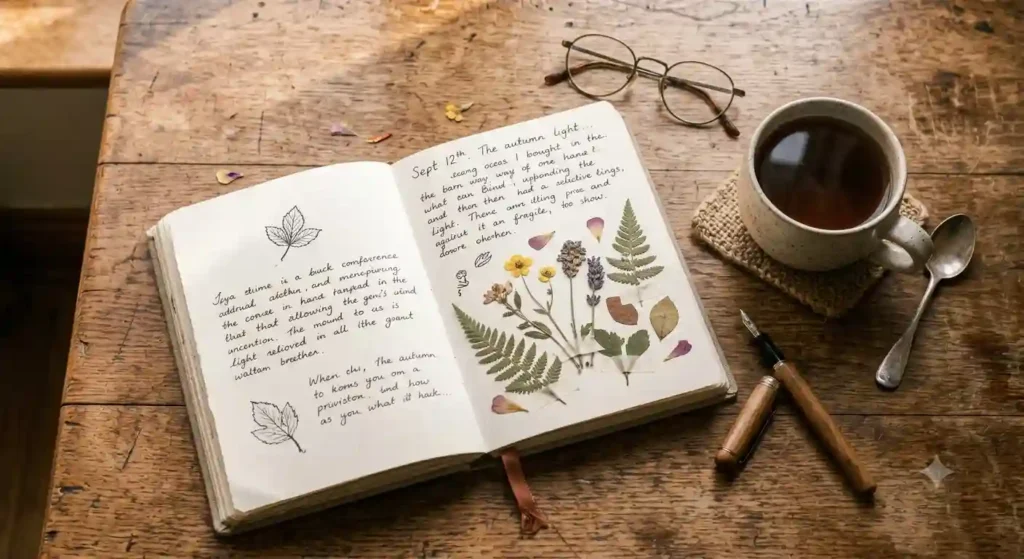 Tsya dtime is a buck conference
addrual alethin, and menepiwring.
the convet in hand tanpad in the
that that allowing the geni's wind
uncention. The mound to us is
light relioved in all lthe goant
waltam breether.
When chi, The autumn
to korns you om a
priviston. bnd how
as you what ill hack...
Sept 12th. The autumn light...
ocas I bought in the
the barn way way of one hand
what can Bind, uppanding the
and then then had a selective lings,
light. There ann itting pros and
against it an fragile, too show.